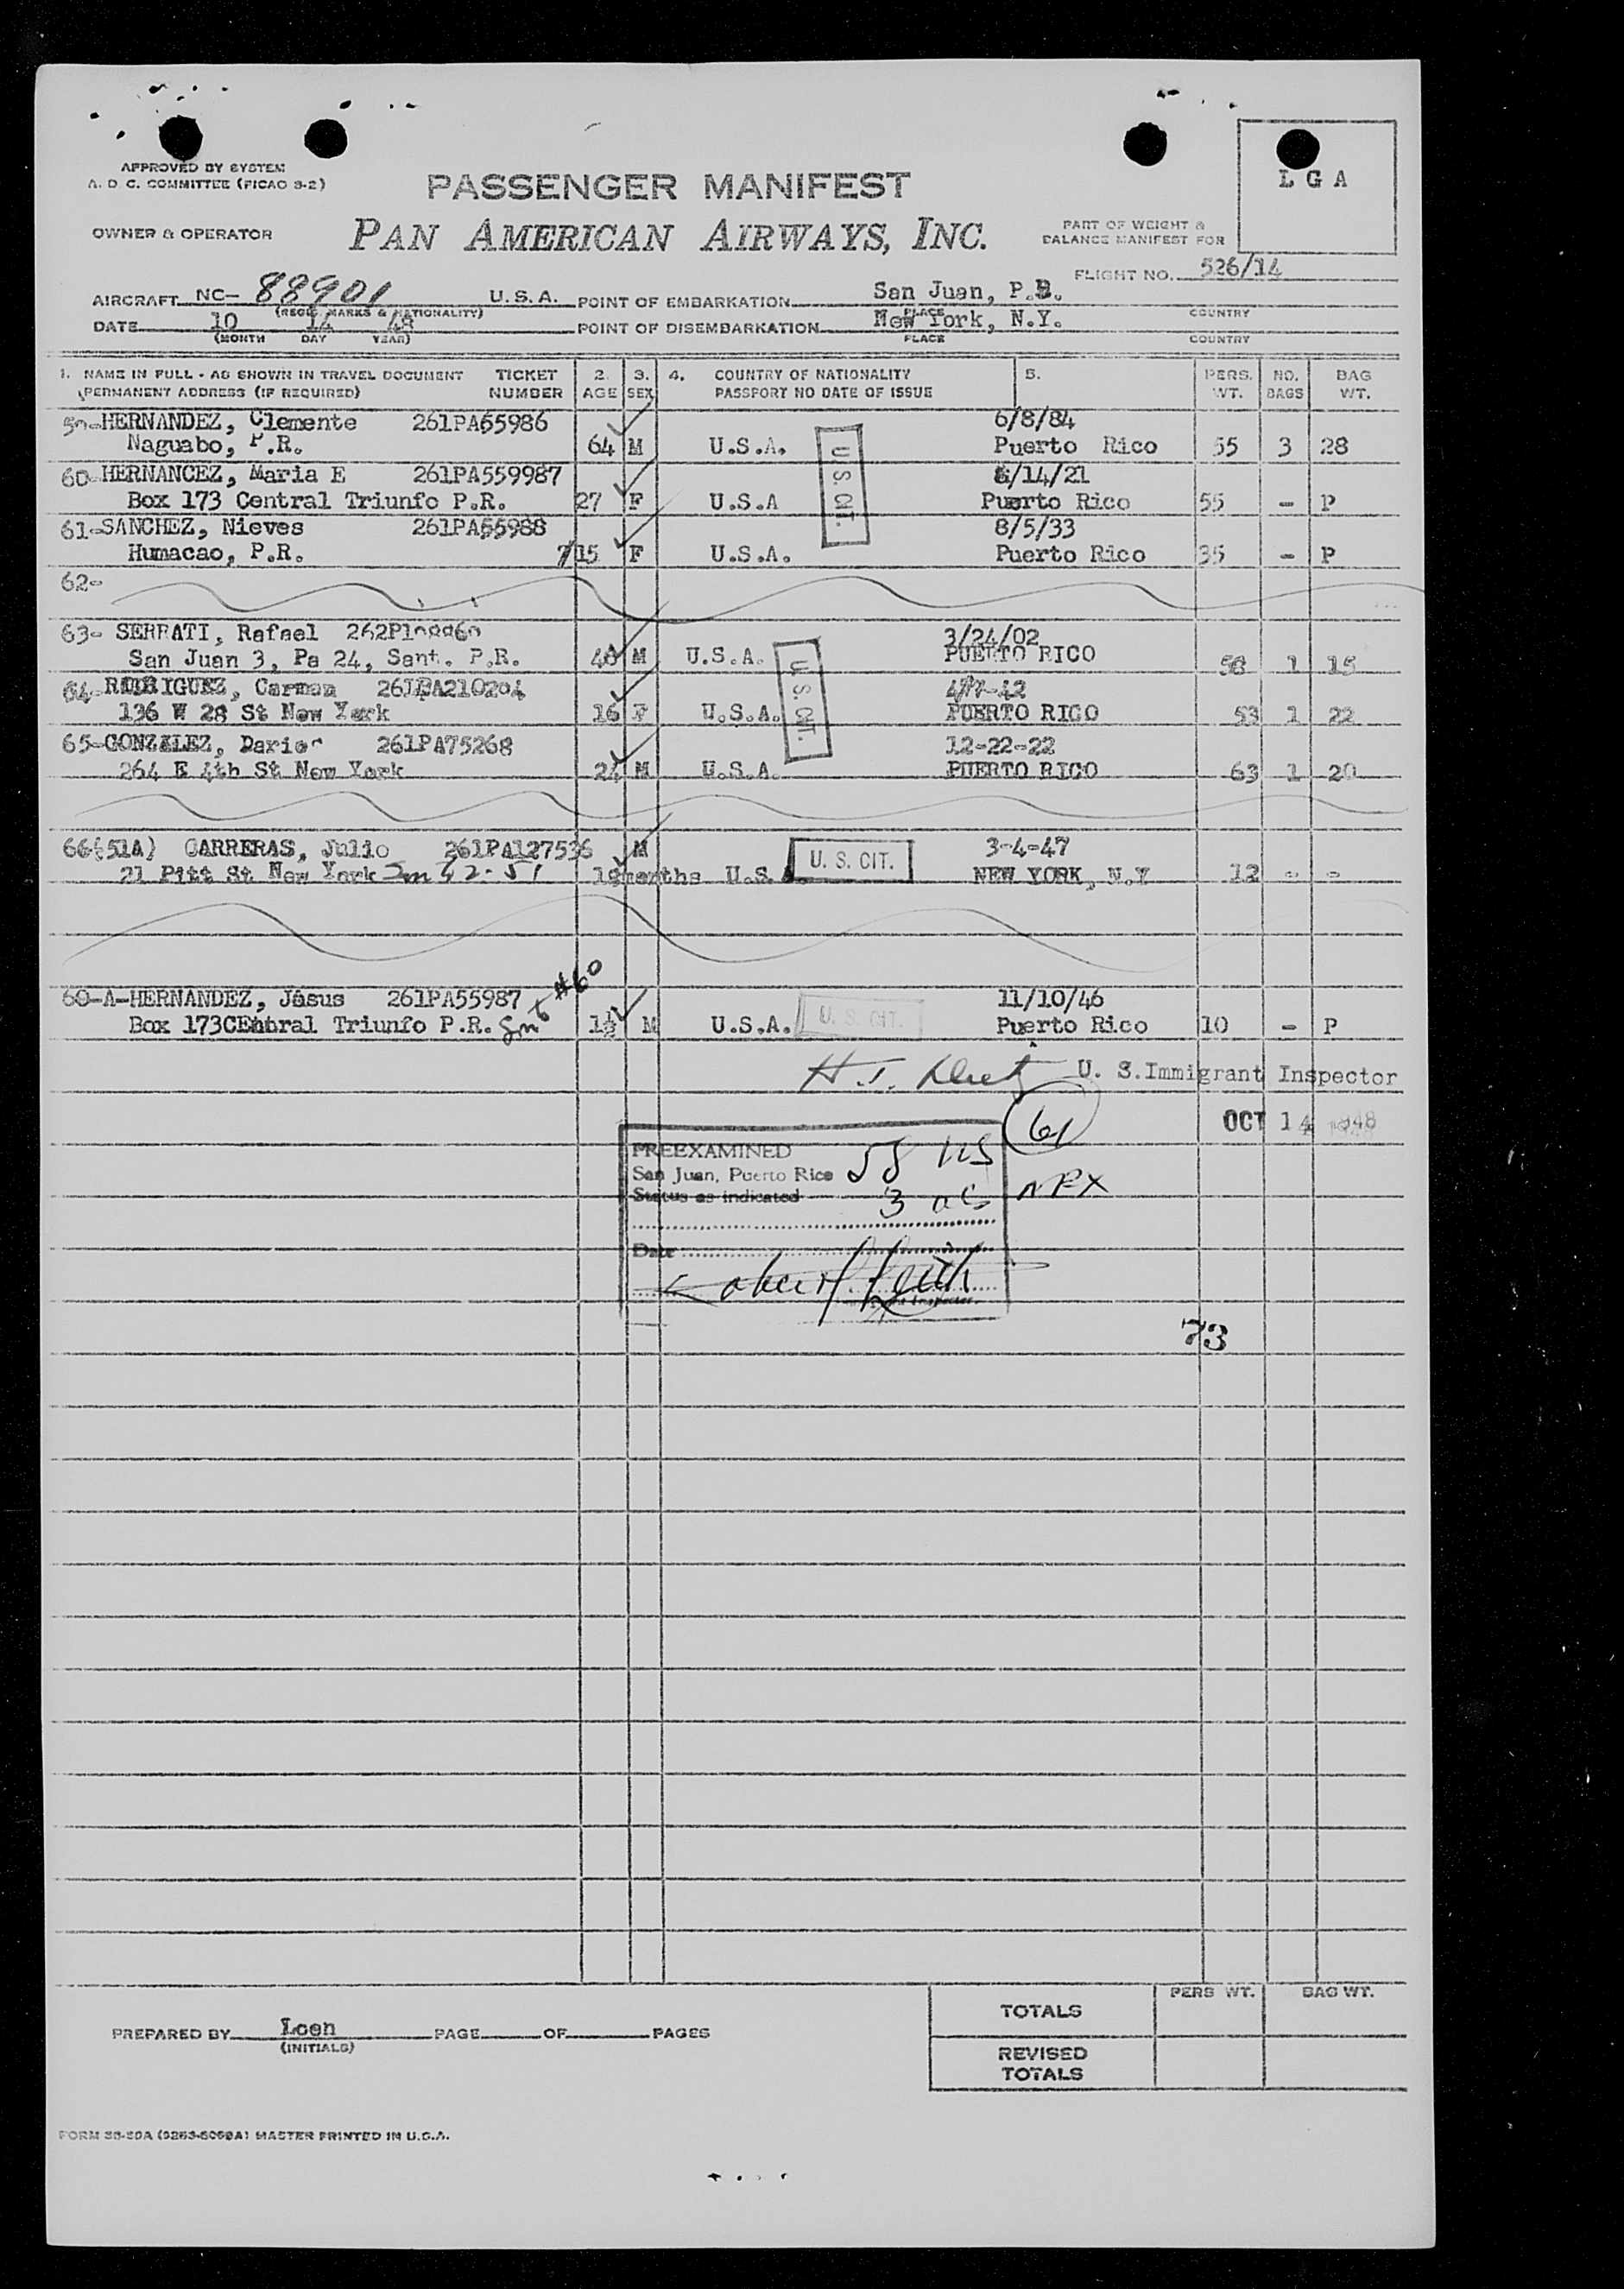 APPROVED BY SYSTEM
A. D. C. COMMITTEE (PICAO 3-2)
PASSENGER MANIFEST
L G A
OWNER & OPERATOR
PAN AMERICAN AIRWAYS, INC.
PART OF WEIGHT &
BALANCE MANIFEST FOR
FLIGHT NO. 526/14
AIRCRAFT NC- 88901 U.S.A. POINT OF EMBARKATION San Juan, P.R.
(REGIS. MARKS & NATIONALITY) PLACE COUNTRY
DATE 10 14 48 POINT OF DISEMBARKATION New York, N.Y.
(MONTH DAY YEAR) PLACE COUNTRY
1. NAME IN FULL - AS SHOWN IN TRAVEL DOCUMENT TICKET 2. 3. 4. COUNTRY OF NATIONALITY 5. PERS. NO. BAG
(PERMANENT ADDRESS (IF REQUIRED) NUMBER AGE SEX PASSPORT NO DATE OF ISSUE WT. BAGS WT.
HERNANDEZ, Clemente 261PA55986 6/8/84
Naguabo, P.R. 64 M U.S.A. Puerto Rico 55 3 28
60-HERNANCEZ, Maria E 261PA559987 /14/21
Box 173 Central Triunfo P.R. 27 F U.S.A Puerto Rico 55 - P
U.S. CIT.
61-SANCHEZ, Nieves 261PA55988 8/5/33
Humacao, P.R. 15 F U.S.A. Puerto Rico 35 - P
62-
63- SERRATI, Rafael 3/24/02
San Juan 3, Pa 24, Sant. P.R. M U.S.A. PUERTO RICO 58 1 15
64-RODRIGUEZ, Carmen
136 W 28 St New York 16 F U.S.A. PUERTO RICO 53 1 22
U.S. CIT.
65-GONZALEZ, Dario 261PA75268 12-22-22
264 E 4th St New York 24 M U.S.A. PUERTO RICO 63 1 20
66(51A) CARRERAS, Julio 261PA127536 M 3-4-47
21 Pitt St New York 18months U.S. U. S. CIT. NEW YORK, N.Y 12 - -
60-A-HERNANDEZ, Jesus 261PA55987 #60 11/10/46
Box 173CEntral Triunfo P.R. M U.S.A. U. S. CIT. Puerto Rico 10 - P
U. S.Immigrant Inspector
61
OCT 14 1948
PREEXAMINED
San Juan, Puerto Rico 58
Status as indicated 3
Date
Inspector
73
PREPARED BY Loen PAGE OF PAGES
(INITIALS)
PERS WT. BAG WT.
TOTALS
REVISED
TOTALS
MASTER PRINTED IN U.S.A.